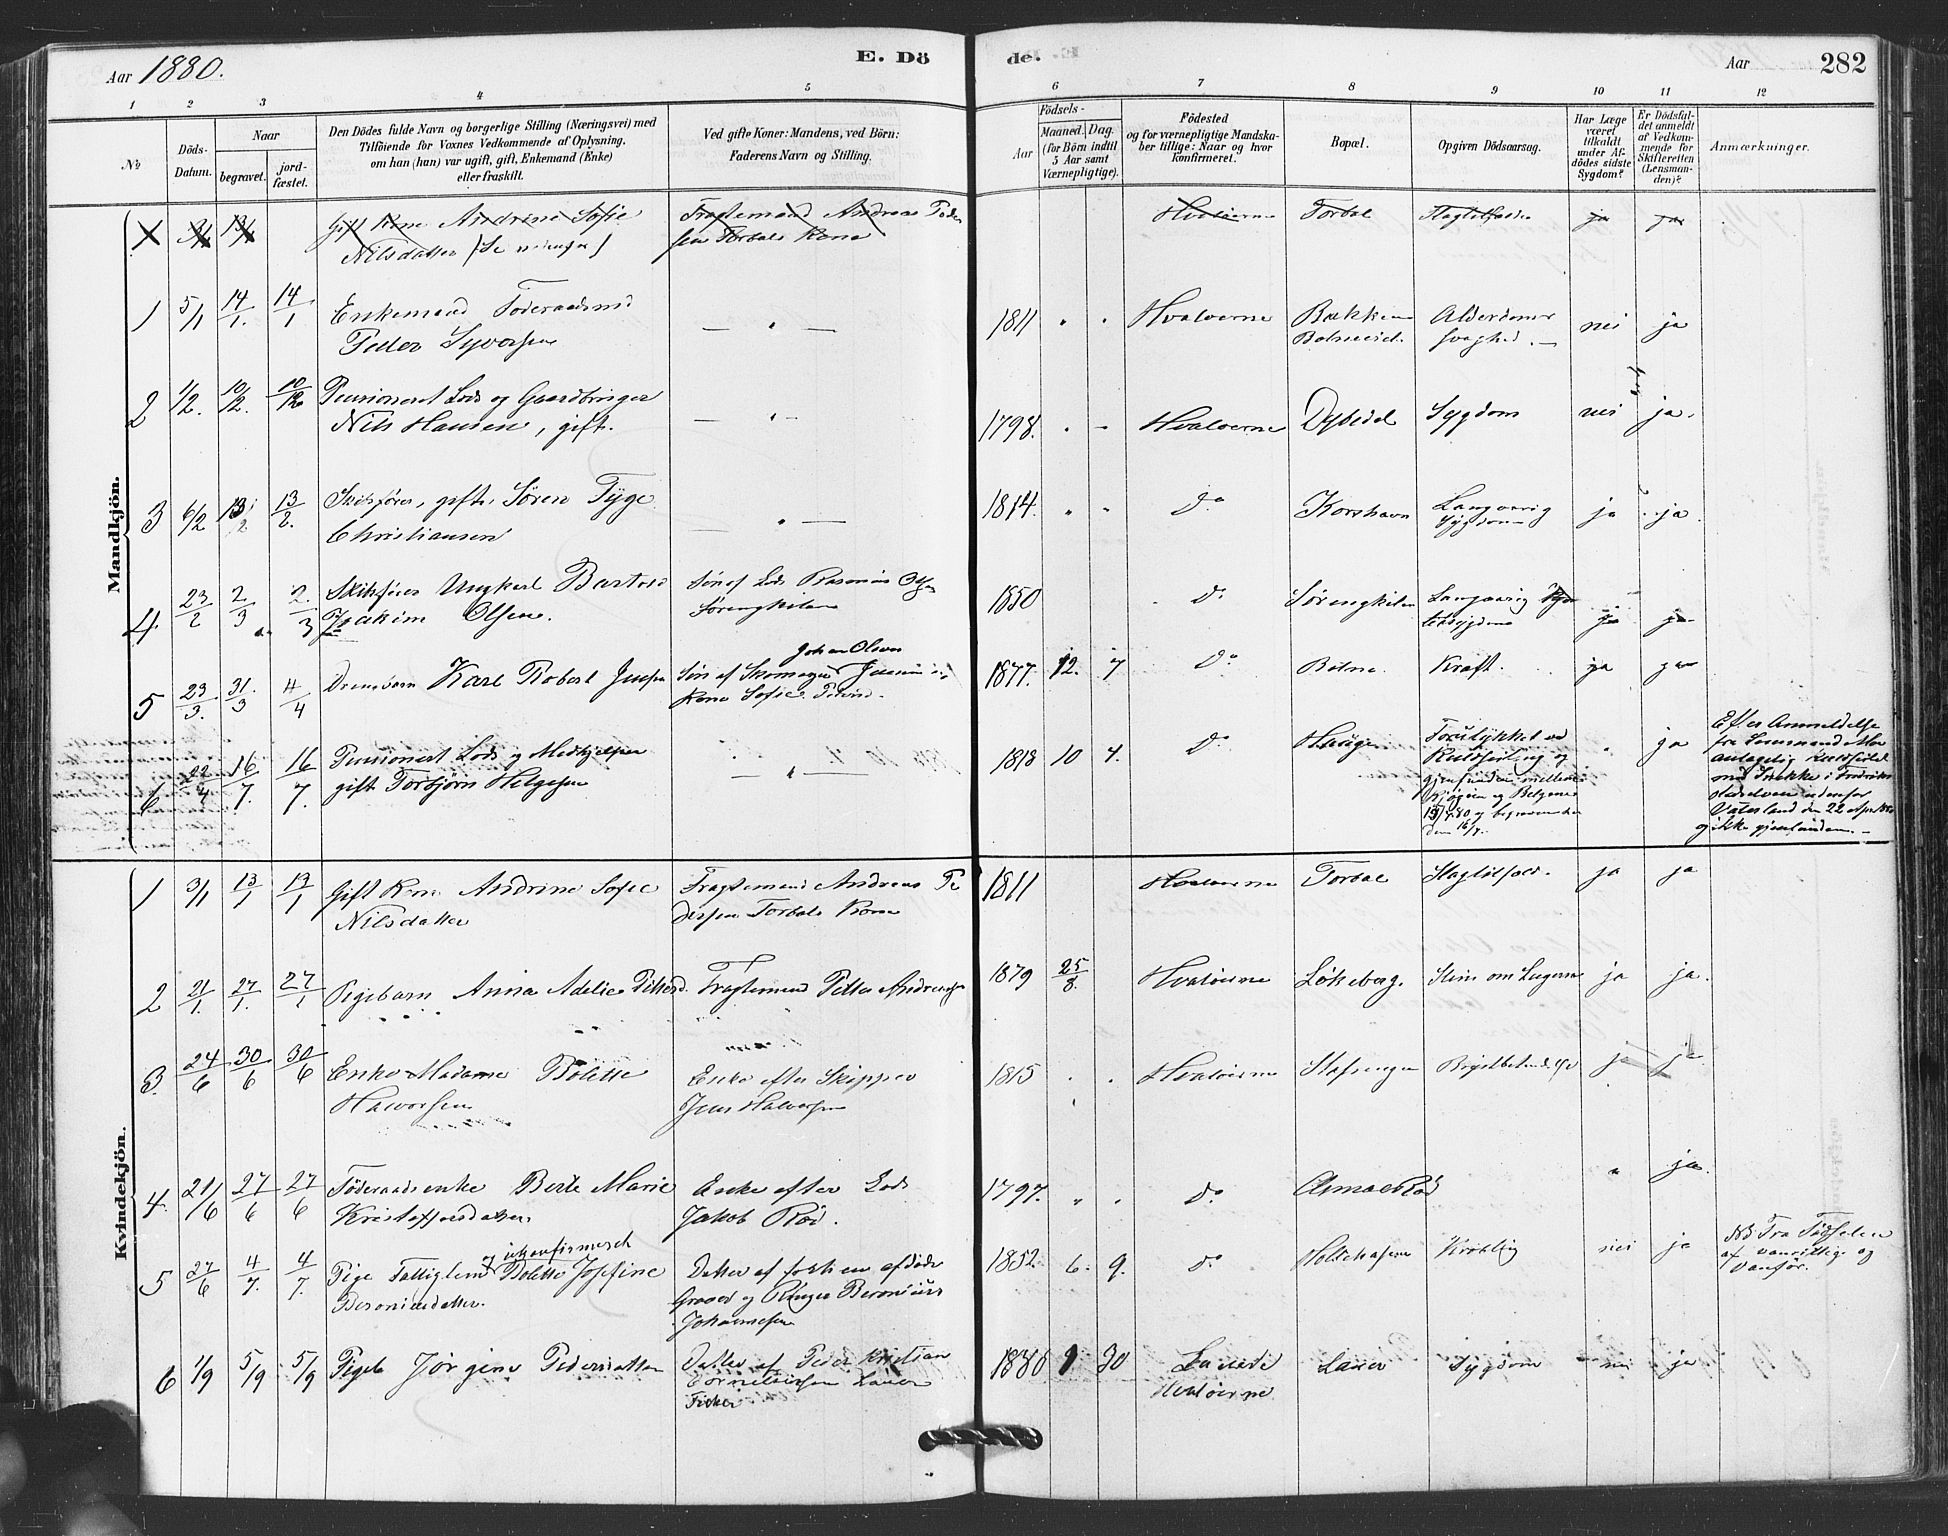 Aar 1880.
E. Dö
de.
Aar
282
1 2 3 4 5 6 7 8 9 10 11 12
No
Döds-
Datum.
Naar
begravet.
jord-
fæstet.
Den Dödes fulde Navn og borgerlige Stilling (Næringsvei) med
Tilföiende for Voxnes Vedkommende af Oplysning,
om han (hun) var ugift, gift, Enkemand (Enke)
eller fraskilt.
Ved gifte Koner: Mandens, ved Börn:
Faderens Navn og Stilling.
Födsels-
Aar
Maaned. Dag.
(for Börn indtil
5 Aar samt
Værnepligtige).
Födested
og for værnepligtige Mandska-
ber tillige: Naar og hvor
konfirmeret.
Bopæl.
Opgiven Dödsaarsag.
Har Læge
været
tilkaldt
under Af-
dödes sidste
Sygdom?
Er Dödsfal-
det anmeldt
af Vedkom-
mende for
Skifteretten
(Lensman-
den)?
Anmærkninger.
Mandkjön.
Gift Kone Andrine Sofie Fragtemand Andreas Peder
Nilsdatter (Se nedenfor) sen Torbals Kone
Hvaløerne Torbal ja ja
1 5/1 14/1. 14/1 Enkemand Föderaadsmd
Peder Syversen
1811 " " Hvaløerne Bækken Alderdoms-
svaghed. nei ja
2 1/2. 10/2. 10/2 Pensioneret Lods og Gaardbruger
Nils Hansen, gift.
1798. " " Hvaløerne Dybedal Sygdom nei ja.
3 6/2 13/2 13/2. Skibsfører, gift, Sören Tyge
Christiansen
1814. " " Do Korshavn Langvarig
Sygdom ja ja
4 23/2 2/3 2/3 Skibsfører Ungkarl
Joakim Olsen. Søn af Lods Rasmus Olsen
Sørengkilen
1850 Do Sörengkilen Langvarig
ja ja
5 23/3. 31/3 4/4 Drengebarn Karl Robert Jensen Søn af Skomager Johan Oliver Jensen
Kone Sofie
1877. 12. 7 Do Botne Kraft. ja ja
6 22/4 16/7. 16/7. Pensioneret Lods og Medhjelper
gift Torbjörn Helgesen
1818 10 4. Do Hauge Forulykket ved
Kuldseiling og
gjenfunden mellem
og Belgen
15/7 80 og begraven der
den 16/7.
" ja Efter Anmeldelse
fra Lensmand Moe
antagelig kuldseilet
med Snekke i Fredriks
stadselven udenfor
Vaterland den 22 April 80
og ikke gjenfunden.
Kvindekjön.
1 3/1 13/1 13/1 Gift Kone Andrine Sofie Fragtemand Andreas Pe
Nilsdatter dersen Torbals Kone
1811 Hvaløerne Torbal Slagtilfæld. ja ja
2 21/1. 27/1. 27/1 Pigebarn Anna Adelie Pettersd. Fragtemand Petter Andreasen
1879 25/8. Hvaløerne Lökeberg. Slim om Lungerne ja ja.
3. 24/6 30/6 30/6 Enke Madame Bolette Enke efter Skipper
Halvorsen Jens Halvorsen
1815 " " Hvaløerne ja ja
4. 21/6 27/6 27/6 Föderaadsenke Berte Marie Enke efter Lods
Kristoffersdatter. Jakob Röd.
1797. " " Do Röd " ja.
5 27/6 4/7. 4/7. Pige Fattiglem og ukonfirmeret Bolette Josefine Datter af
Beroniusdatter. Graver og Ringer Beronius
Johannesen
1852. 6. 9. Do Kröbling nei ja NB Fra Födselen
af vanvittig og
vanför.
6 1/9 5/9 5/9 Pigeb Jörgine Pedersdatter Datter af Peder Kristian
Corneliussen Lauer
Fisker
1880 1 30 Lauer Sygdom nei ja
Hvaløerne